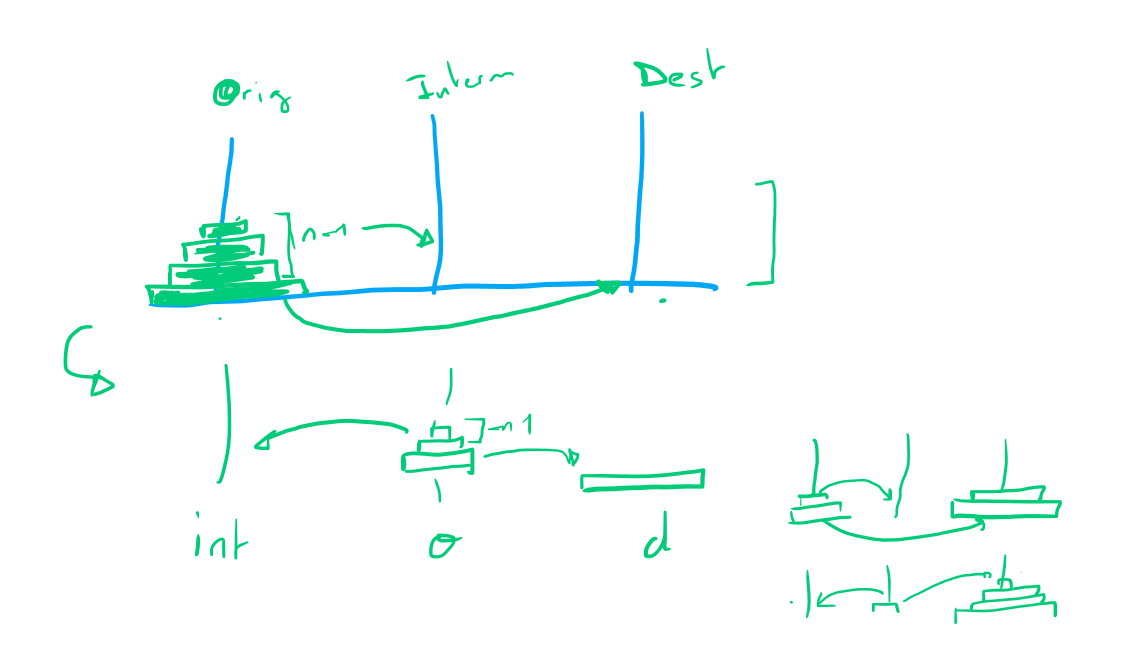 Orig Interm Dest
n-1
n-1
int o d